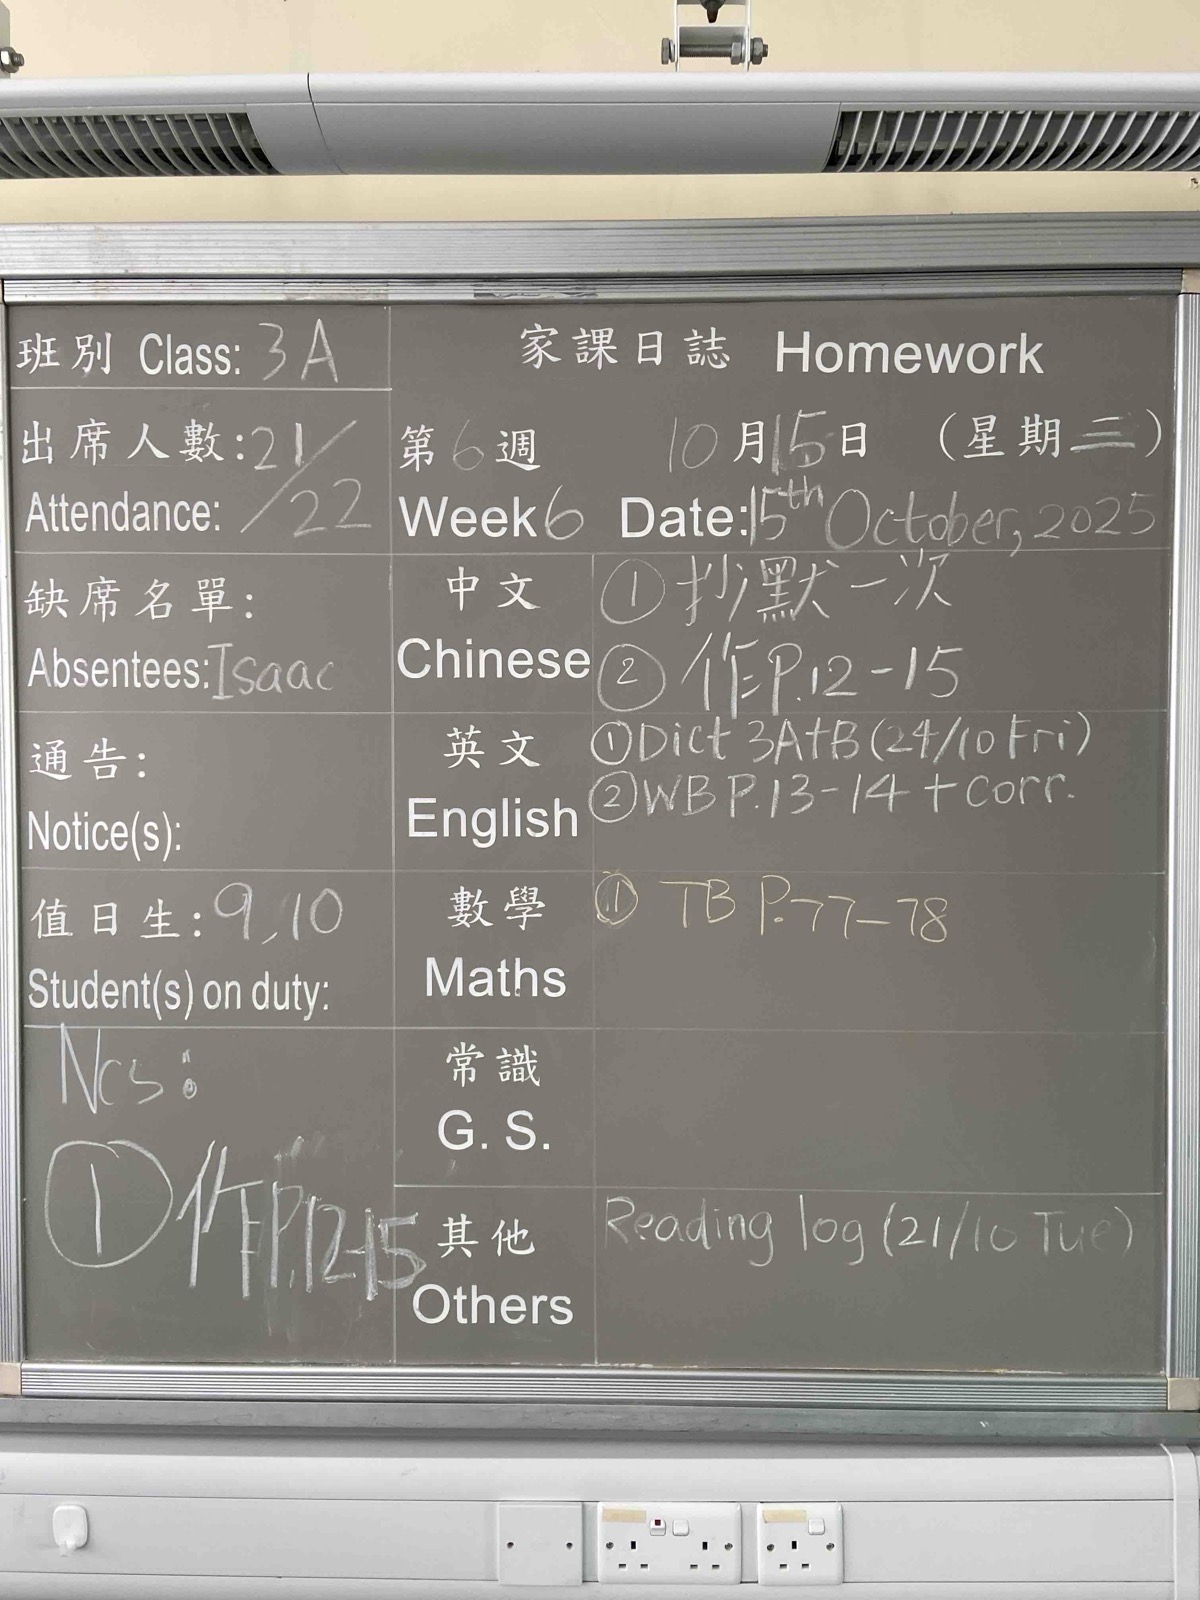 班別 Class: 3A
家課日誌 Homework
出席人數: 21/22
Attendance:
第6週 10月15日 (星期三)
Week 6 Date: 15th October, 2025
缺席名單:
Absentees: Isaac
中文 ① 抄默一次
Chinese ② 作P.12-15
通告:
Notice(s):
英文 ① Dict 3A+B (24/10 Fri)
English ② WB P.13-14 + corr.
值日生: 9,10
Student(s) on duty:
數學 ① TB P.77-78
Maths
Ncs:
① 作P.12-15
常識
G. S.
其他 Reading log (21/10 Tue)
Others